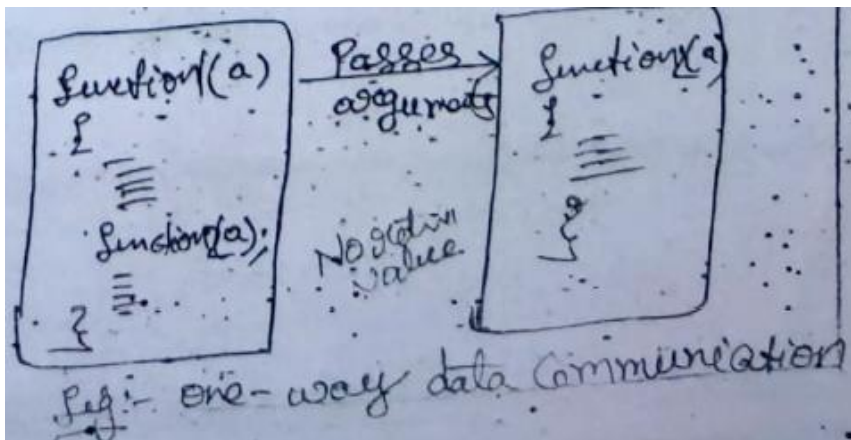 function1(a)
{
function2(a);
}
Passes
arguments
No return
value
function2(a)
{
}
Fig:- one-way data Communication